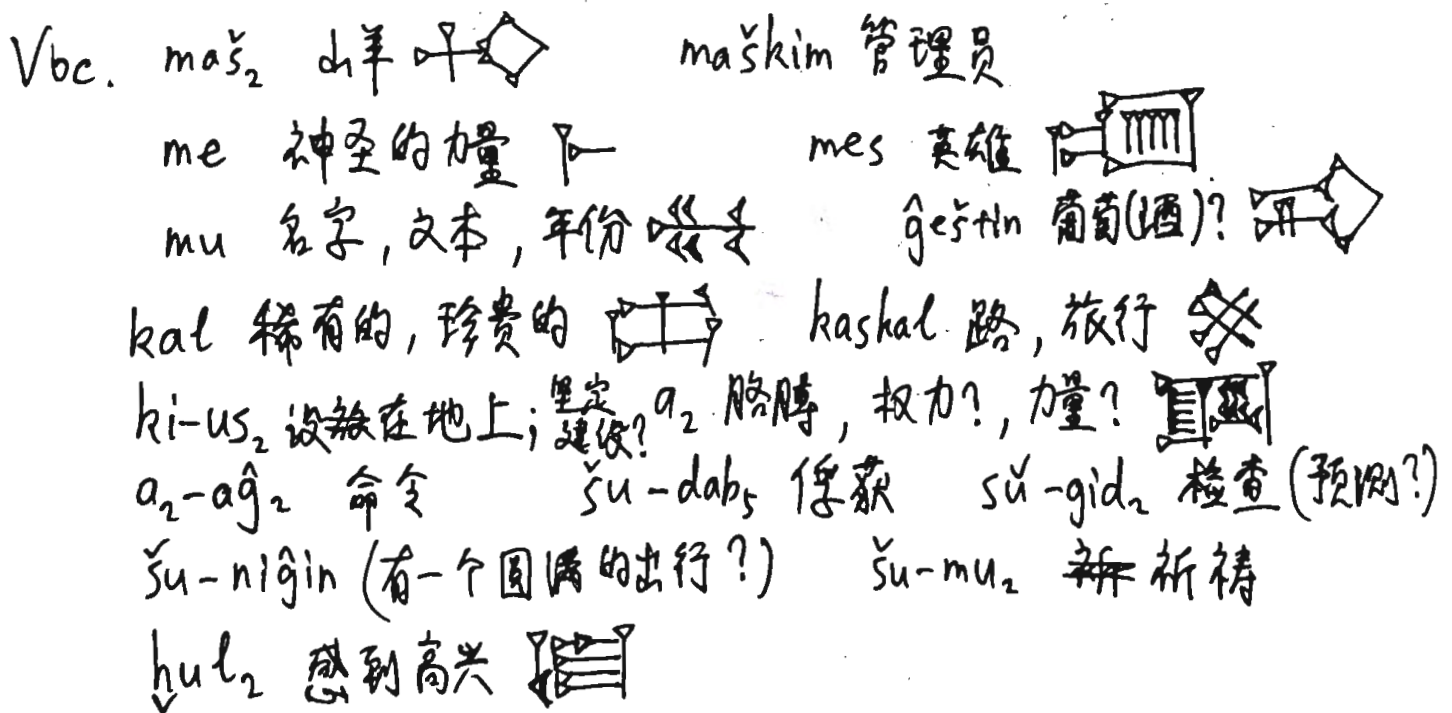 Vbc. maš₂ 山羊 maškim 管理员
me 神圣的力量 mes 英雄
mu 名字,文本,年份 ĝeštin 葡萄(酒)?
kal 稀有的,珍贵的 kaskal 路,旅行
ki-us₂ 设放在地上;坚定建设? a₂ 胳膊,权力?,力量?
a₂-aĝ₂ 命令 šu-dab₅ 俘获 šu-gid₂ 检查(预测?)
šu-niĝin (有一个圆满的出行?) šu-mu₂ 祈祷
ḫul₂ 感到高兴